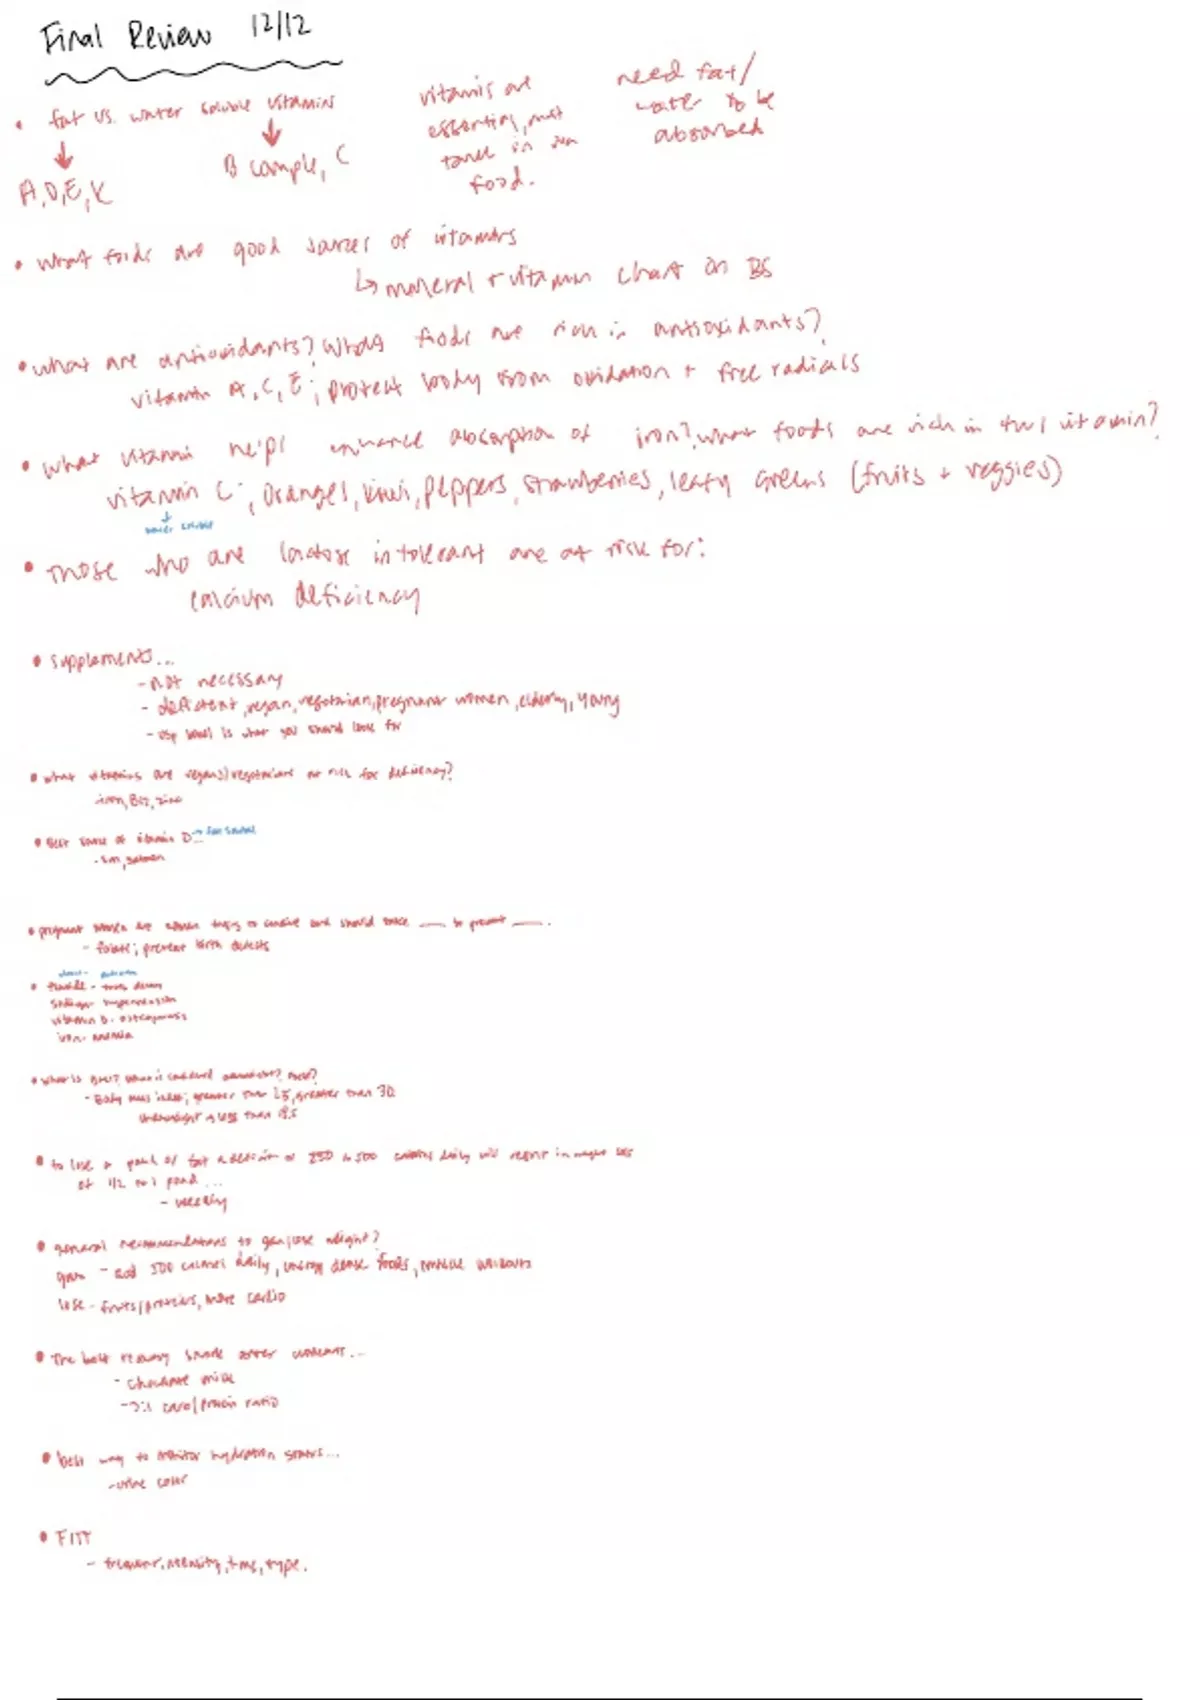 Final Review 12/12
• fat vs. water soluble vitamins
A,D,E,K
B comple, C
vitamins are
essential, must
take in via
food.
need fat/
water to be
absorbed
• What foods are good sources of vitamins
↳ mineral + vitamin chart on BS
• what are antioxidants? What foods are rich in antioxidants?
vitamin A, C, E; protect body from oxidation + free radicals
• what vitamin helps enhance absorption of iron? what foods are rich in this vitamin?
vitamin C; oranges, kiwi, peppers, strawberries, leafy greens (fruits + veggies)
water soluble
• Those who are lactose intolerant are at risk for:
calcium deficiency
• supplements...
- not necessary
- deficient, vegan, vegetarian, pregnant women, elderly, young
- usp label is what you should look for
• what vitamins are vegans/vegetarians at risk for deficiency?
iron, B12, zinc
• Best source of vitamin D → fat soluble
- sun, salmon
• pregnant women are women trying to conceive and should take ___ to prevent ___.
- folate; prevent birth defects
• fluoride - tooth decay
sodium - hypertension
vitamin D - osteoporosis
iron - anemia
• what is BMI? when is considered overweight? obese?
- Body mass index; greater than 25, greater than 30
underweight is less than 18.5
• to lose a pound of fat a deficit of 250 to 500 calories daily will result in weight loss
of 1/2 to 1 pound...
- weekly
• general recommendations to gain/lose weight?
gain - add 500 calories daily, energy dense foods, muscle workouts
lose - fruits/proteins, more cardio
• The best recovery snack after workout...
- chocolate milk
- 3:1 carb/protein ratio
• best way to monitor hydration status...
- urine color
• FITT
- frequency, intensity, time, type.